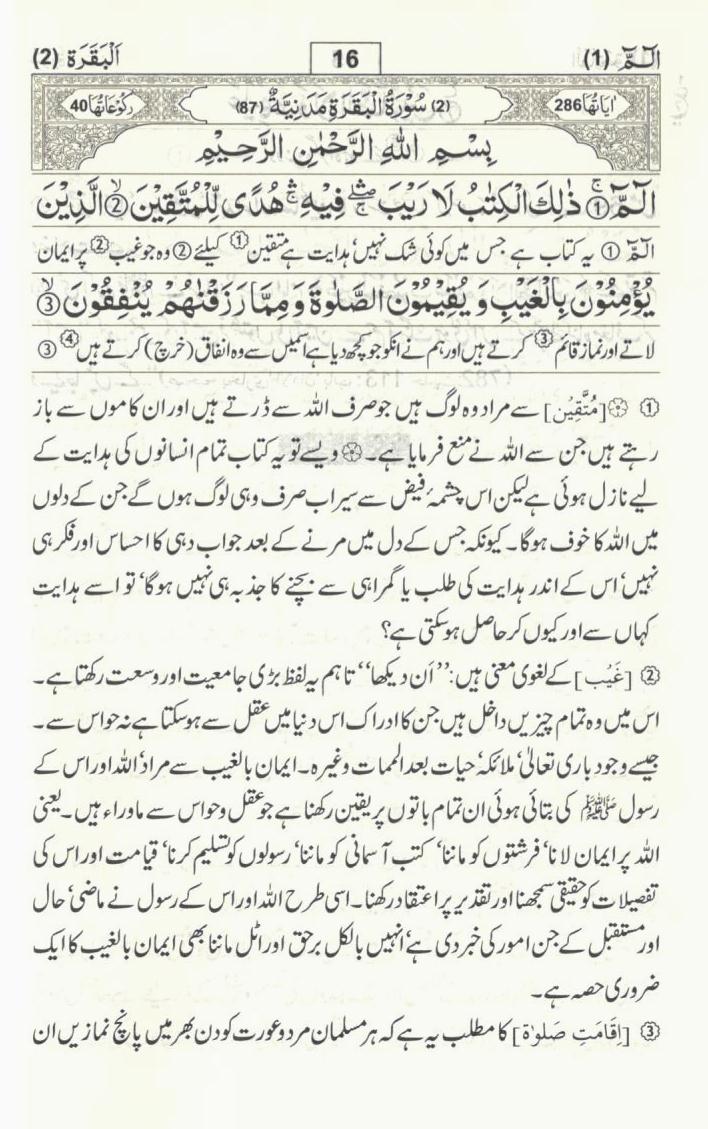 الٓمّٓ (1) 16 اَلْبَقَرَة (2)
اٰیَاتُهَا 286 (2) سُوْرَةُ الْبَقَرَةِ مَدَنِیَّةٌ (87) رُكُوْعَاتُهَا 40
بِسْمِ اللّٰهِ الرَّحْمٰنِ الرَّحِیْمِ
الٓمّٓ ۚ ① ذٰلِكَ الْكِتٰبُ لَا رَیْبَ ۛۖ فِیْهِ ۛۚ هُدًی لِّلْمُتَّقِیْنَ ② ۙ الَّذِیْنَ
الٓمّٓ ① یہ کتاب ہے جس میں کوئی شک نہیں‘ ہدایت ہے متقین ① کیلئے ② وہ جو غیب ② پر ایمان
یُؤْمِنُوْنَ بِالْغَیْبِ وَ یُقِیْمُوْنَ الصَّلٰوةَ وَ مِمَّا رَزَقْنٰهُمْ یُنْفِقُوْنَ ③ ۙ
لاتے اور نماز قائم ③ کرتے ہیں اور ہم نے انکو جو کچھ دیا ہے اسمیں سے وہ انفاق (خرچ) کرتے ہیں ④ ③
① ۞ [مُتَّقِیْن] سے مراد وہ لوگ ہیں جو صرف اللہ سے ڈرتے ہیں اور ان کاموں سے باز
رہتے ہیں جن سے اللہ نے منع فرمایا ہے۔ ۞ ویسے تو یہ کتاب تمام انسانوں کی ہدایت کے
لیے نازل ہوئی ہے لیکن اس چشمۂ فیض سے سیراب صرف وہی لوگ ہوں گے جن کے دلوں
میں اللہ کا خوف ہوگا۔ کیونکہ جس کے دل میں مرنے کے بعد جواب دہی کا احساس اور فکر ہی
نہیں‘ اس کے اندر ہدایت کی طلب یا گمراہی سے بچنے کا جذبہ ہی نہیں ہوگا‘ تو اسے ہدایت
کہاں سے اور کیوں کر حاصل ہوسکتی ہے؟
② [غَیْب] کے لغوی معنی ہیں: ’’اَن دیکھا‘‘ تاہم یہ لفظ بڑی جامعیت اور وسعت رکھتا ہے۔
اس میں وہ تمام چیزیں داخل ہیں جن کا ادراک اس دنیا میں عقل سے ہوسکتا ہے نہ حواس سے۔
جیسے وجود باری تعالیٰ‘ ملائکہ‘ حیات بعد الممات وغیرہ۔ ایمان بالغیب سے مراد‘ اللہ اور اس کے
رسول ﷺ کی بتائی ہوئی ان تمام باتوں پر یقین رکھنا ہے جو عقل وحواس سے ماوراء ہیں۔ یعنی
اللہ پر ایمان لانا‘ فرشتوں کو ماننا‘ کتب آسمانی کو ماننا‘ رسولوں کو تسلیم کرنا‘ قیامت اور اس کی
تفصیلات کو حقیقی سمجھنا اور تقدیر پر اعتقاد رکھنا۔ اسی طرح اللہ اور اس کے رسول نے ماضی‘ حال
اور مستقبل کے جن امور کی خبر دی ہے‘ انہیں بالکل برحق اور اٹل ماننا بھی ایمان بالغیب کا ایک
ضروری حصہ ہے۔
③ [اِقَامَتِ صَلوٰة] کا مطلب یہ ہے کہ ہر مسلمان مرد وعورت کو دن بھر میں پانچ نمازیں ان